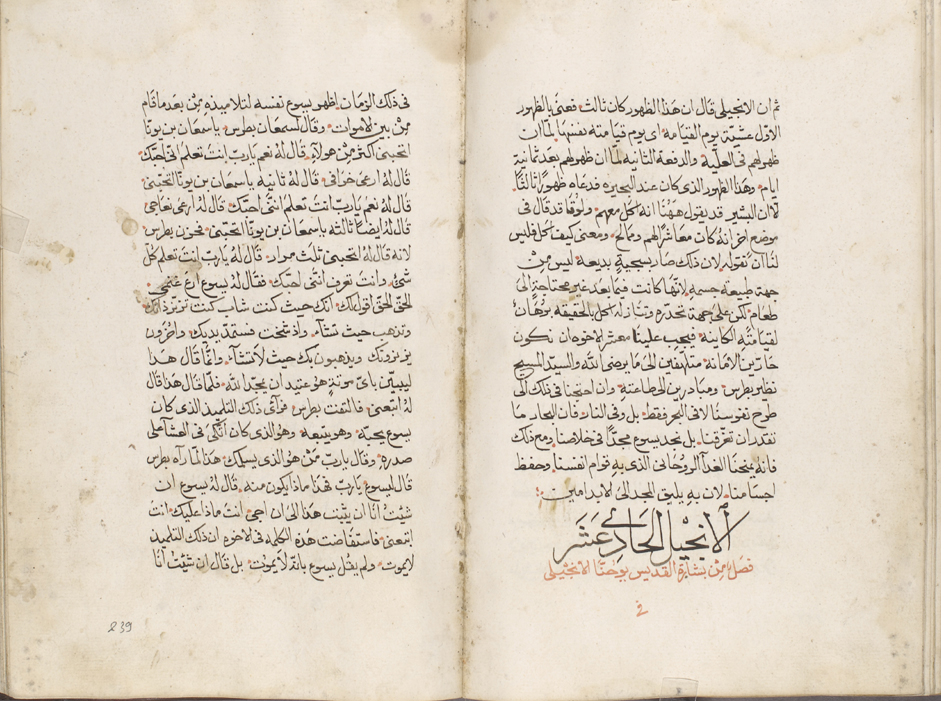 ثم ان الانجيلي قال ان هذا الظهور كان ثالث فعني بالظهور
الاول عشية يوم القيامة اي يوم قيامته نفسها لما ان
ظهر لهم في العلية والدفعة الثانية لما ان ظهر لهم بعد ثمانية
ايام وهذا الظهور الذي كان عند البحيره فدعاه ظهورًا ثالثًا
لان البشير قد يقول ههنا انه اكل معهم ولوقا قد قال في
موضع اخر انه كان معاشرًا لهم ومالح ومعني كيف اكل فليس
لنا ان نقوله لان ذلك صار بسجية بديعة ليس من
جهة طبيعة جسمه لانها كانت فيما بعد غير محتاجة الى
طعام لكن على جهة تحدره وتنازله اكل بالحقيقه برهان
لقيامته الكاينة فيجب علينا معشر الاخوه ان نكون
حارين الامانة متلهفين الى ما يرضي الله والسيد المسيح
نظير بطرس ومبادرين الى طاعته وان احتجنا في ذلك الى
طرح نفوسنا لا في البحر فقط بل وفي النار فان البحار ما
تقتدر ان تغرقنا بل نجد يسوع مجدًا في خلاصنا ومع ذلك
فانه يمنحنا الغدآ الروحاني الذي به قوام انفسنا وحفظ
اجسامنا لان به يليق المجد الى الابد امين
الانجيل الحادي عشر
فصل من بشارة القديس يوحنا الانجيلي
في ذلك الزمان اظهر يسوع نفسه لتلاميذه من بعد ما قام
من بين الاموات وقال لسمعان بطرس يا سمعان بن يونا
اتحبني اكثر من هولآء قال له نعم يا رب انت تعلم اني احبك
قال له ارعى خرافي قال له ثانية يا سمعان بن يونا اتحبني
قال له نعم يا رب انت تعلم انني احبك قال له ارعى نعاجي
قال له ايضًا ثالثه يا سمعان بن يونا اتحبني فحزن بطرس
لانه قال له اتحبني ثلث مرار قال له يا رب انت تعلم كل
شئ وانت تعرف انني احبك فقال له يسوع ارع غنمي
الحق الحق اقول لك انك حيث كنت شاب كنت تزنر ذاتك
وتذهب حيث تشآء واذ شخت فستمد يديك واخرون
يزنرونك ويذهبون بك حيث لا تشآء وانما قال هذا
ليبين باي موتةٍ هو عتيد ان يمجد الله فلما قال هذا قال
له اتبعني فالتفت بطرس فرآى ذلك التلميذ الذي كان
يسوع يحبه وهو يتبعه وهو الذي كان اتكى في العشآ على
صدره وقال يا رب من هو الذي يسلمك هذا لما رآه بطرس
قال ليسوع يا رب فهذا ماذا يكون منه قال له يسوع ان
شيت انا ان يثبت هكذا الى ان اجي انت ماذا عليك انت
اتبعني فاستفاضت هذه الكلمه في الاخوه ان ذلك التلميذ
لا يموت ولم يقل يسوع بانه لا يموت بل قال ان شيت انا
239